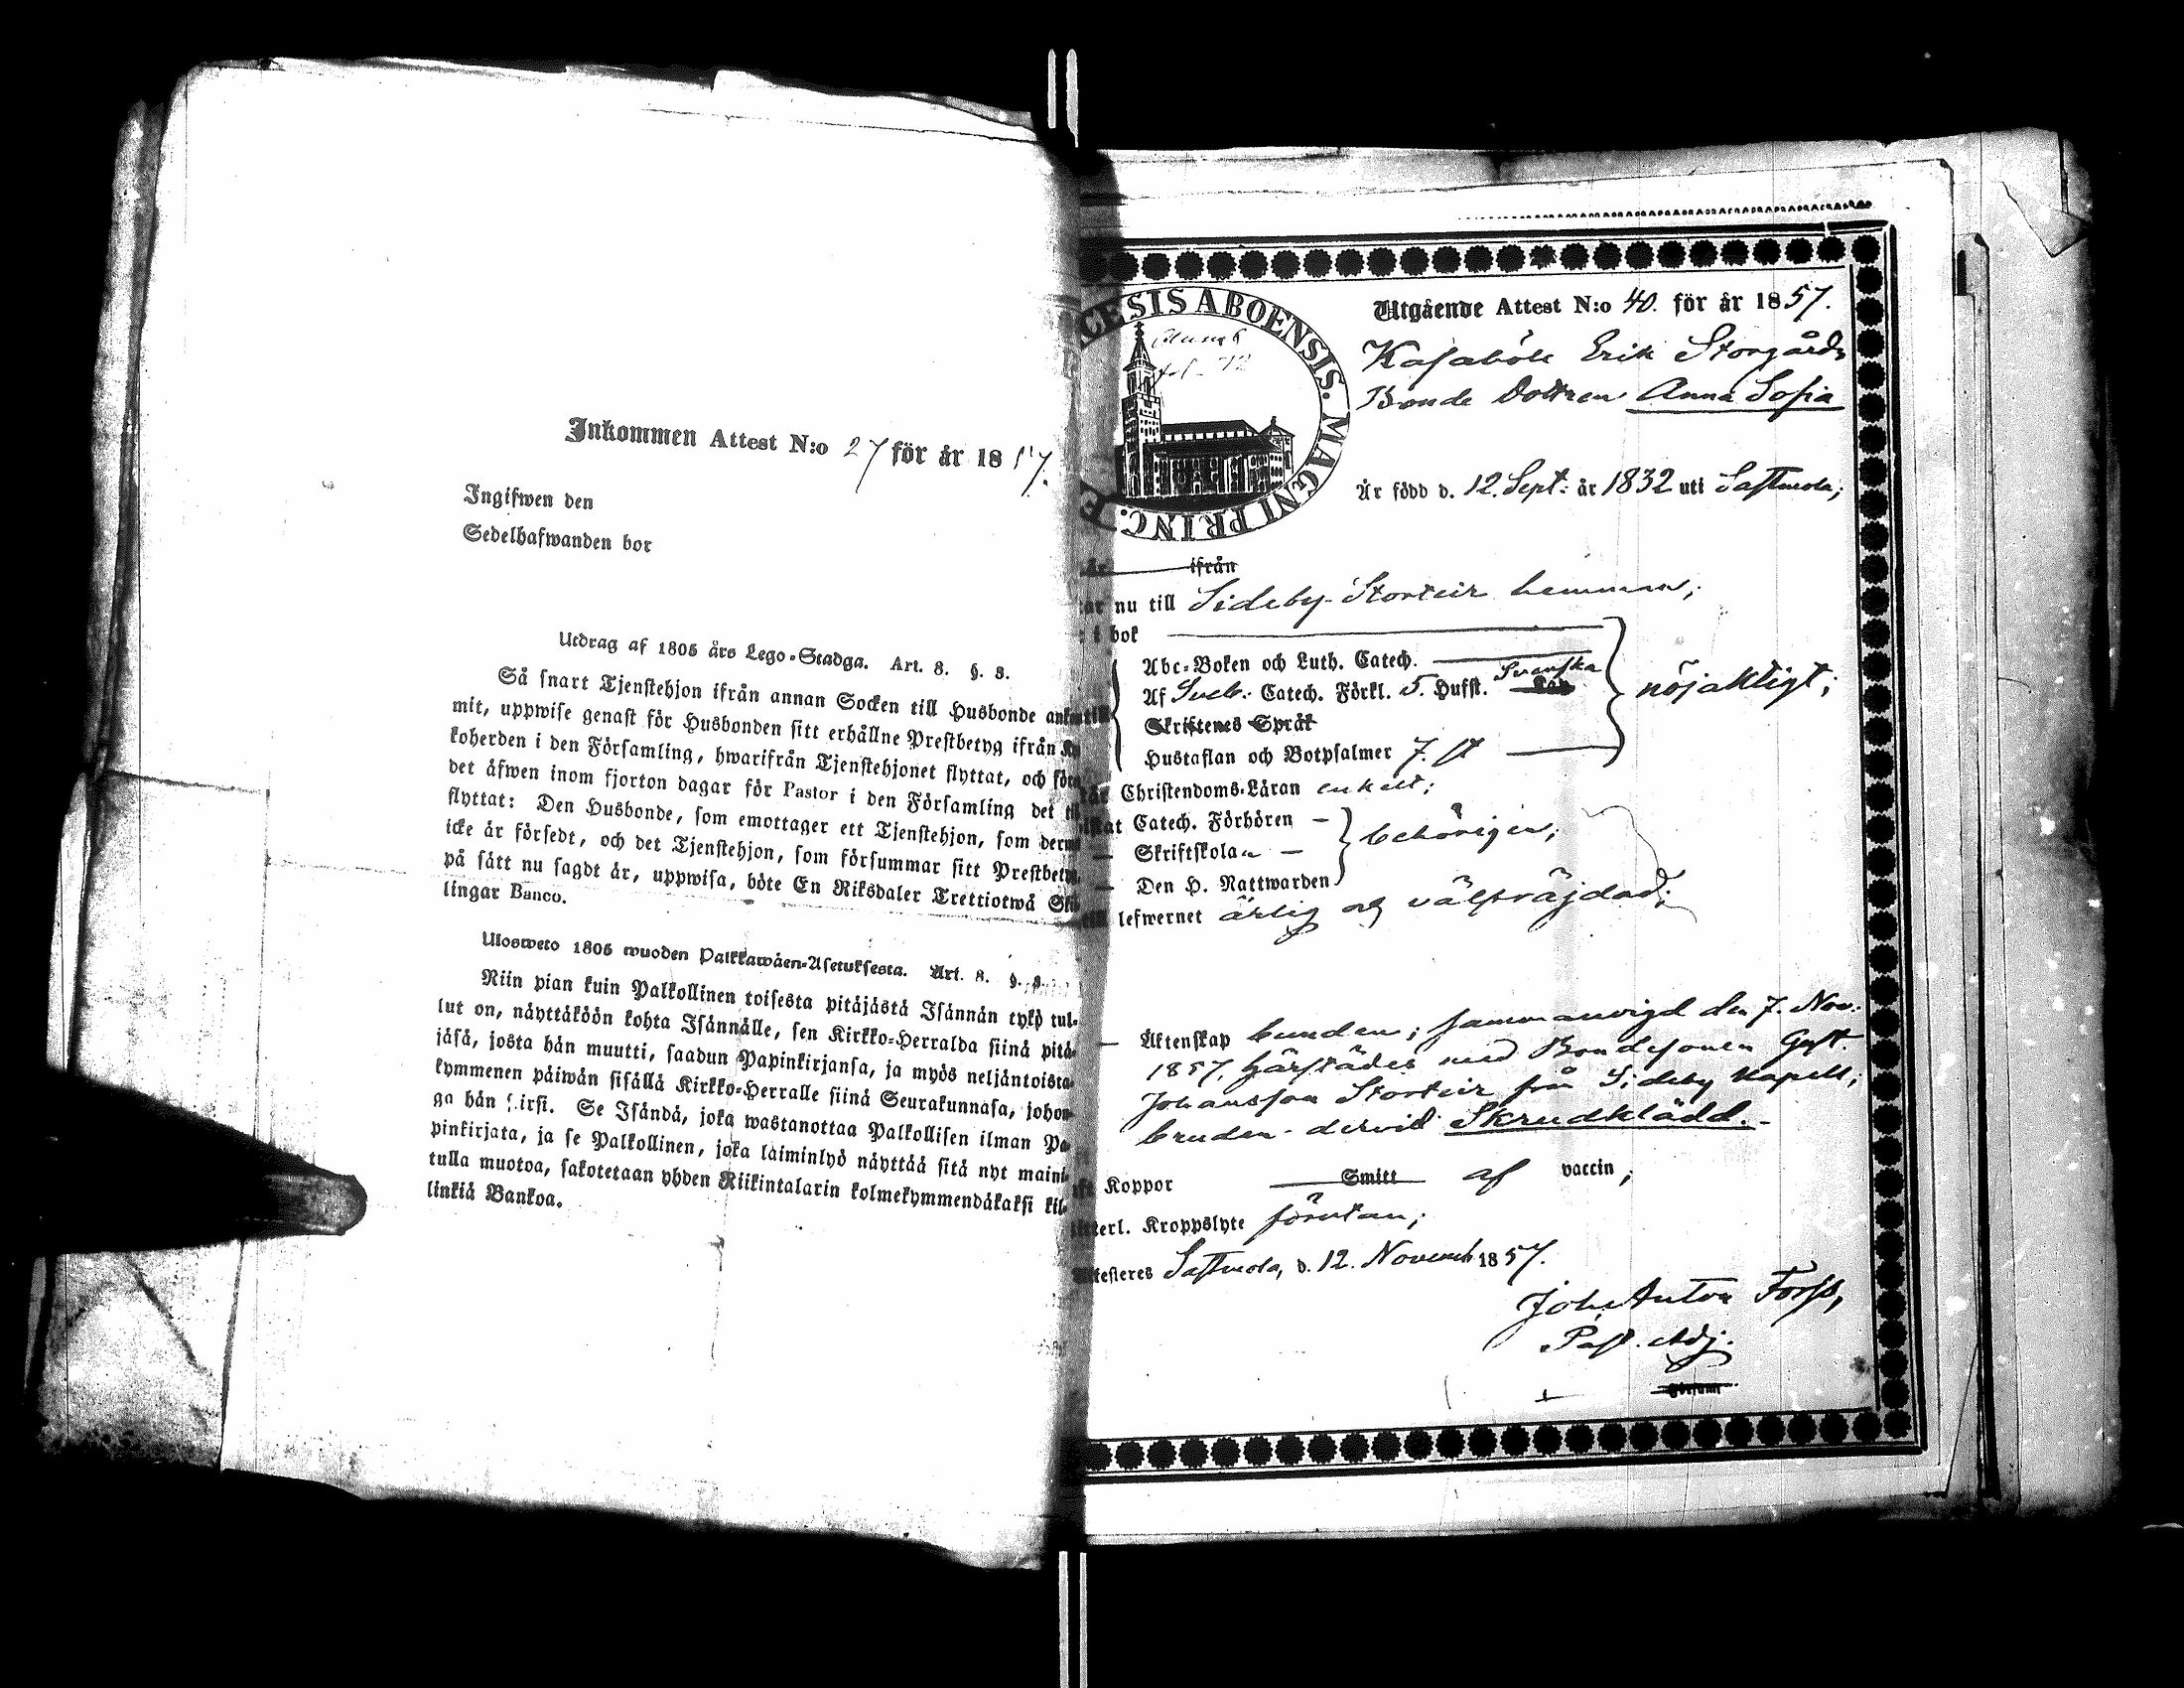 Inkommen Attest N:o 27 för år 1857.
Ingifwen den
Sedelhafwanden bor
Utdrag af 1805 års Lego-Stadga. Art. 8. §. 8.
Så snart Tjenstehjon ifrån annan Socken till Husbonde ankom
mit, uppwise genast för Husbonden sitt erhållne Prestbetyg ifrån Ky
koherden i den Församling, hwarifrån Tjenstehjonet flyttat, och före
det äfwen inom fjorton dagar för Pastor i den Församling det ti
flyttat: Den Husbonde, som emottager ett Tjenstehjon, som derm
icke är försedt, och det Tjenstehjon, som försummar sitt Prestbety
på sätt nu sagdt är, uppwisa, böte En Riksdaler Trettiotwå Ski
lingar Banco.
Ulosweto 1805 wuoden Palkkawäen-Asetuksesta. Art. 8. §. 8.
Niin pian kuin Palkollinen toisesta pitäjästä Isännän tykö tul-
lut on, näyttäköön kohta Isännälle, sen Kirkko-Herralda siinä pitä-
jäsä, josta hän muutti, saadun Papinkirjansa, ja myös neljäntoista-
kymmenen päiwän sisällä Kirkko-Herralle siinä Seurakunnasa, johon-
ga hän siirsi. Se Isändä, joka wastanottaa Palkollisen ilman Pa-
pinkirjata, ja se Palkollinen, joka laiminlyö näyttää sitä nyt maini-
tulla muotoa, sakotetaan yhden Riikintalarin kolmekymmendäkaksi kil-
linkiä Bankoa.
CESIS ABOENSIS. MAGNI PRINC. F
Utgående Attest N:o 40. för år 1857.
Kasaböle Erik Storgårds
Bonde Dottren Anna Sofia
Är född d. 12. Sept: år 1832 uti Sastmola;
år ifrån
tar nu till Sideby-Storteir hemman;
i bok
Abc-Boken och Luth. Catech.
Af Sveb: Catech. Förkl. 5. Hufst. Svenska
Skriftenes Språk
Hustaflan och Botpsalmer 7. st
nöjaktigt;
Christendoms-Läran enkelt;
Catech. Förhören
Skriftskolan
Den H. Nattwarden
behörigen;
till lefwernet ärlig och välfräjdad;
Äktenskap bunden; sammanvigd den 7. Nov:
1857, härstädes med Bondesonen Gust.
Johansson Storteir från Sideby Kapell;
bruden dervid Skrudklädd.-
Koppor Smitt af vaccin;
tterl. Kroppslyte förutan;
Attesteras Sastmola, d. 12. Novemb 1857.
Joh. Anton Forss,
Past. Adj.